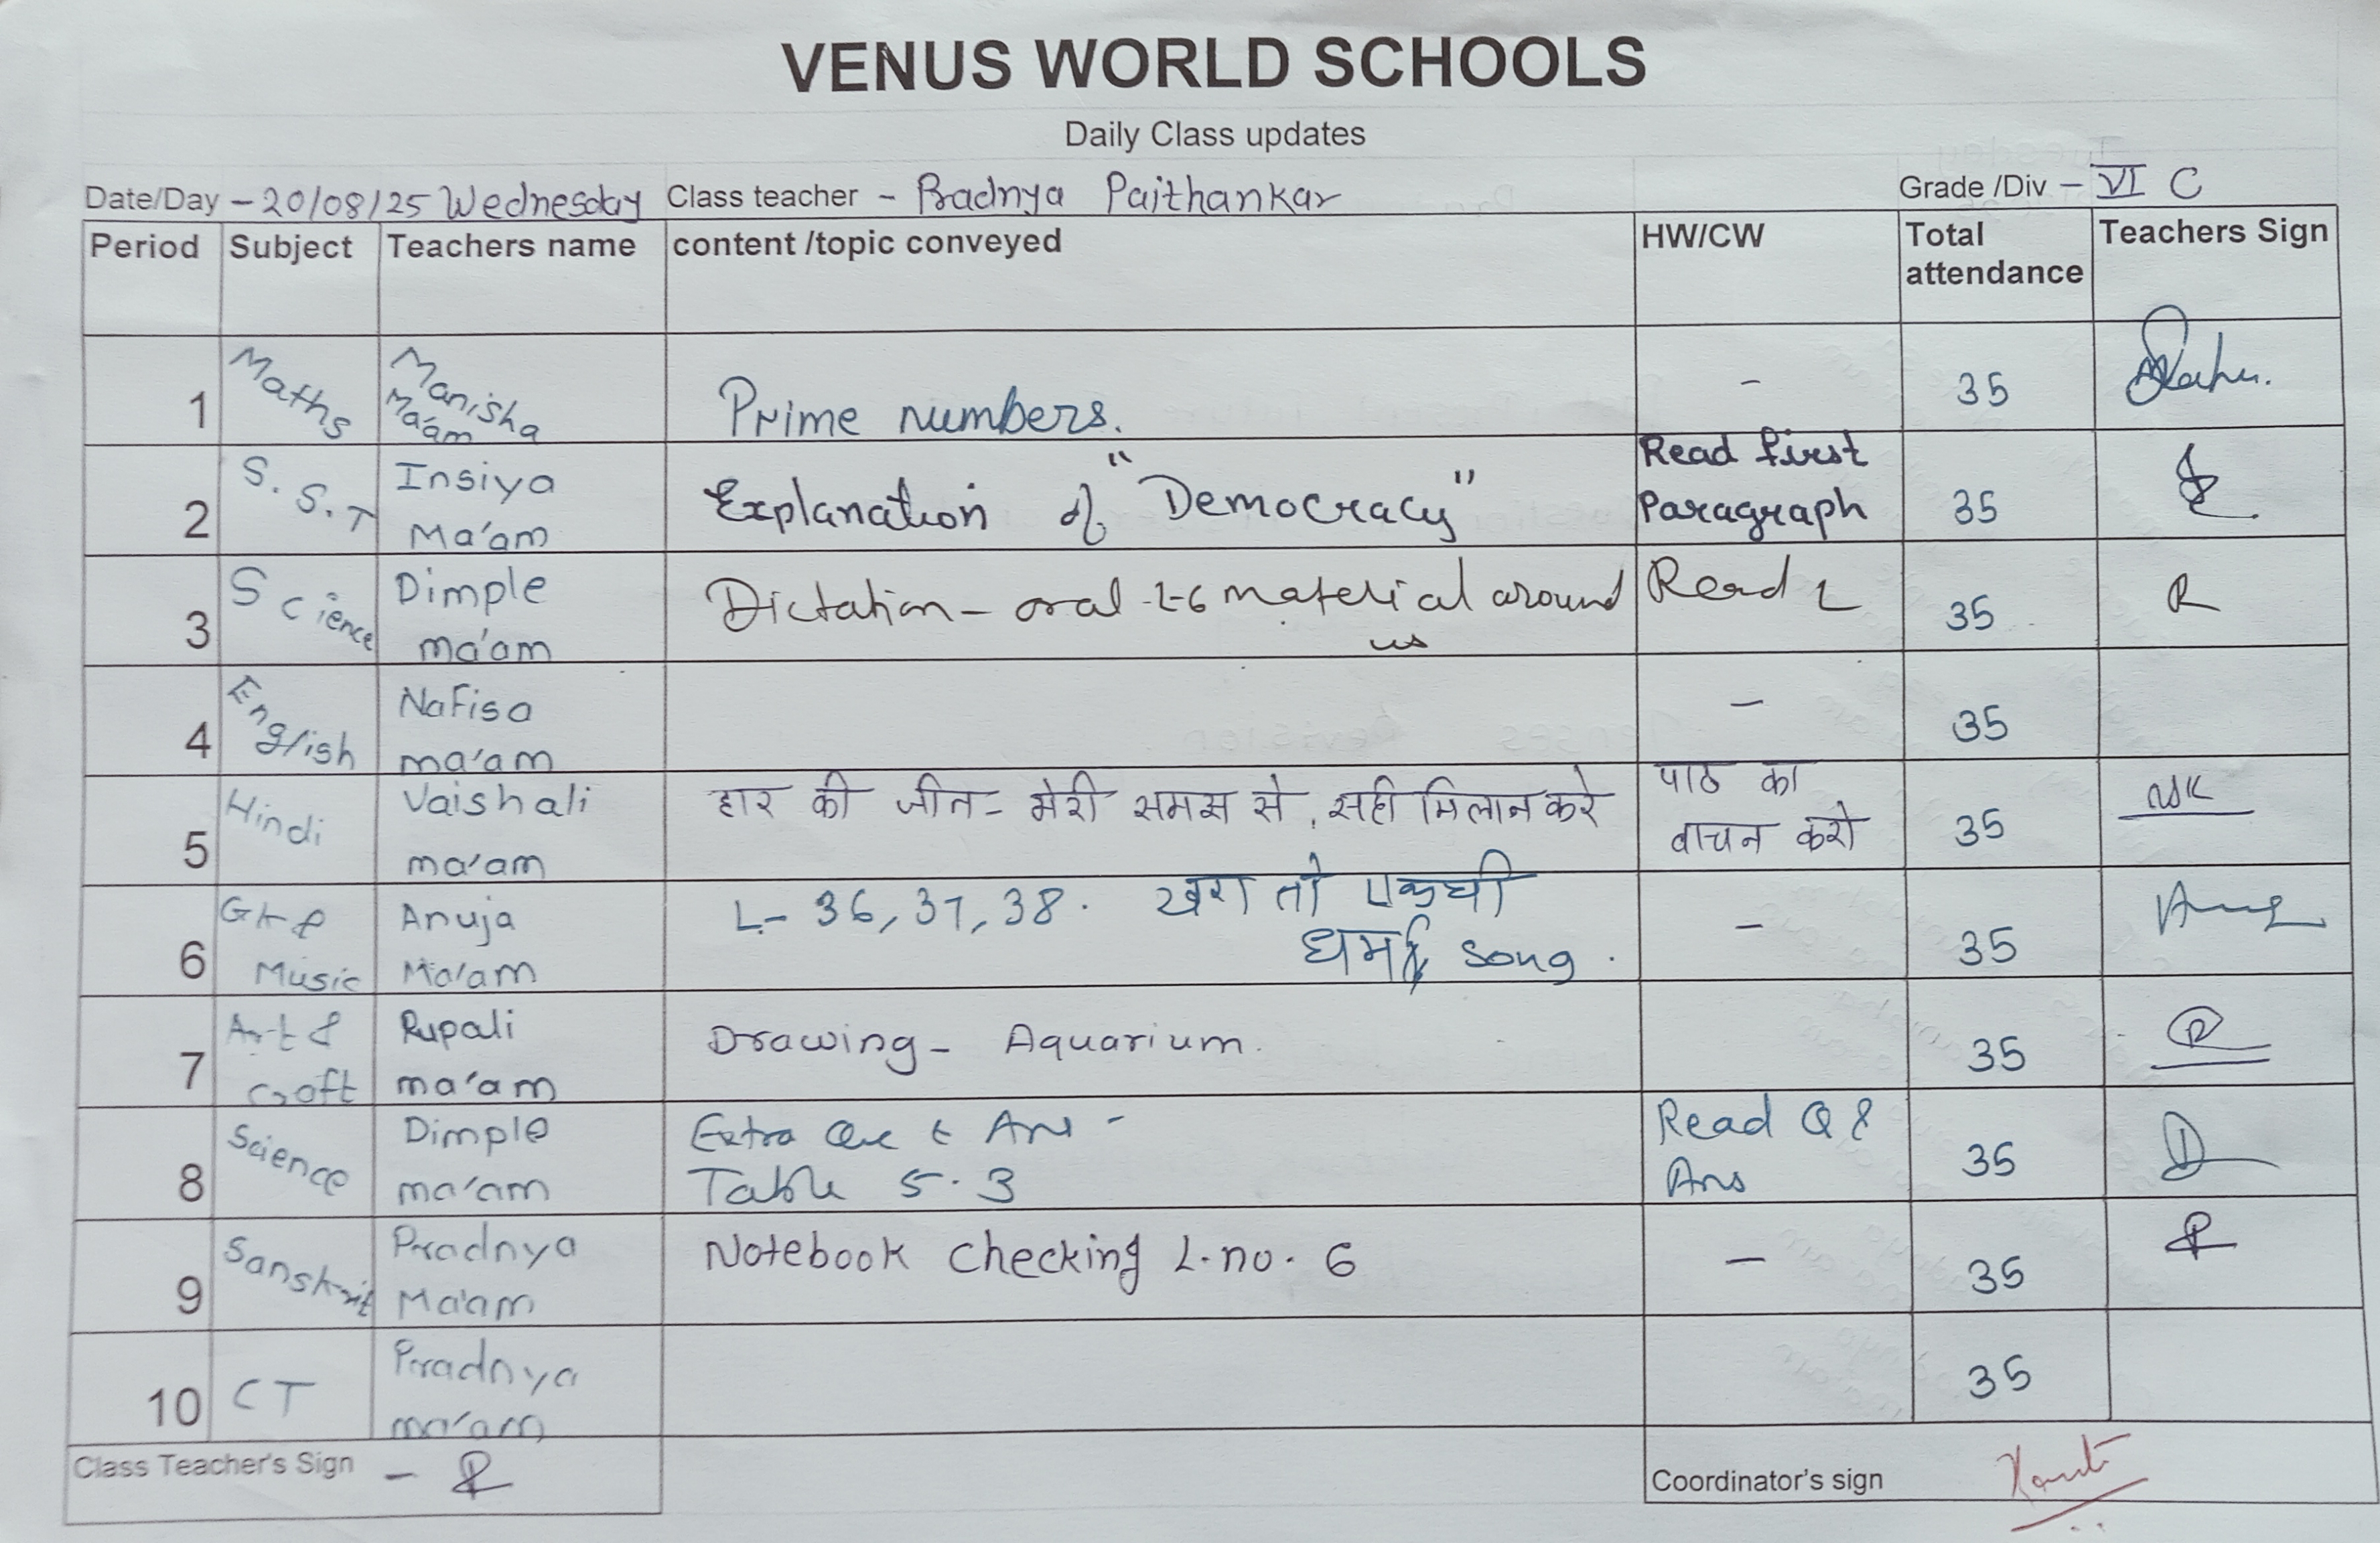 VENUS WORLD SCHOOLS
Daily Class updates
Date/Day - 20/08/25 Wednesday Class teacher - Pradnya Paithankar Grade /Div - VI C
Period Subject Teachers name content /topic conveyed HW/CW Total attendance Teachers Sign
1 Maths Manisha Ma'am Prime numbers. - 35
2 S.S.T Insiya Ma'am Explanation of "Democracy" Read first Paragraph 35
3 Science Dimple ma'am Dictation - oral L-6 material around us Read L 35 R
4 English Nafisa ma'am - 35
5 Hindi Vaishali ma'am हार की जीत - मेरी समझ से, सही मिलान करे पाठ का वाचन करो 35
6 GK & Music Anuja Ma'am L- 36, 37, 38. खरा तो एकची धर्म song. - 35
7 Art & Craft Rupali ma'am Drawing - Aquarium. 35 R
8 Science Dimple ma'am Extra Que & Ans - Table 5.3 Read Q & Ans 35 D
9 Sanskrit Pradnya Ma'am Notebook checking L.no. 6 - 35
10 CT Pradnya ma'am 35
Class Teacher's Sign - Coordinator's sign